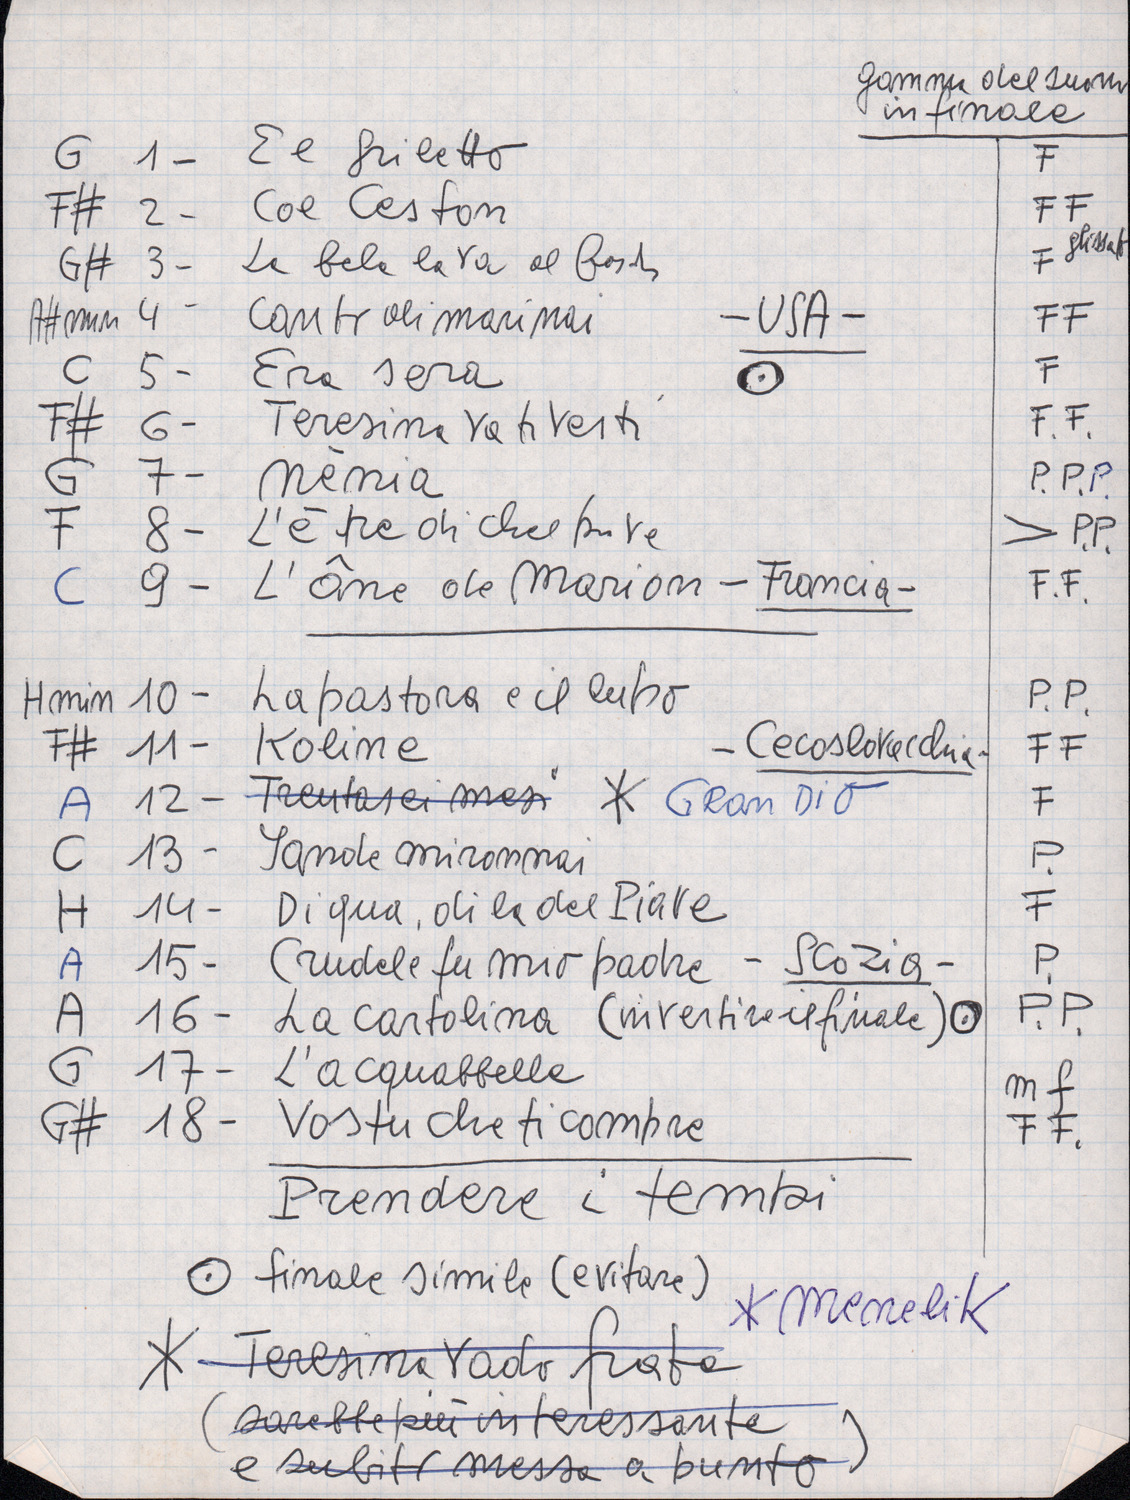 gamma del suono
in finale
G 1- El griletto F
F# 2- Col Ceston FF
G# 3- La bela la va al F glissato
A#min 4- Canto di marinai -USA- FF
C 5- Era sera ⊙ F
F# 6- Teresina va ti vesti F.F.
G 7- Nènia P.P.P.
F 8- L'è tre dì che > P.P.
C 9- L'Âne de Marion - Francia - F.F.
H min 10- La pastora e il lupo P.P.
F# 11- Koline - Cecoslovacchia - FF
A 12- Trentasei mesi * GRan DiO F
C 13- P.
H 14- Di qua, di la del Piave F
A 15- Crudele fu mio padre - Scozia - P.
A 16- La cartolina (invertire il finale) ⊙ P.P.
G 17- L'acquabbella mf
G# 18- Vostu che ti compre FF.
Prendere i tempi
⊙ finale simile (evitare)
* Menelik
* Teresina Vado
(sarebbe più interessante
e subito messa a punto)